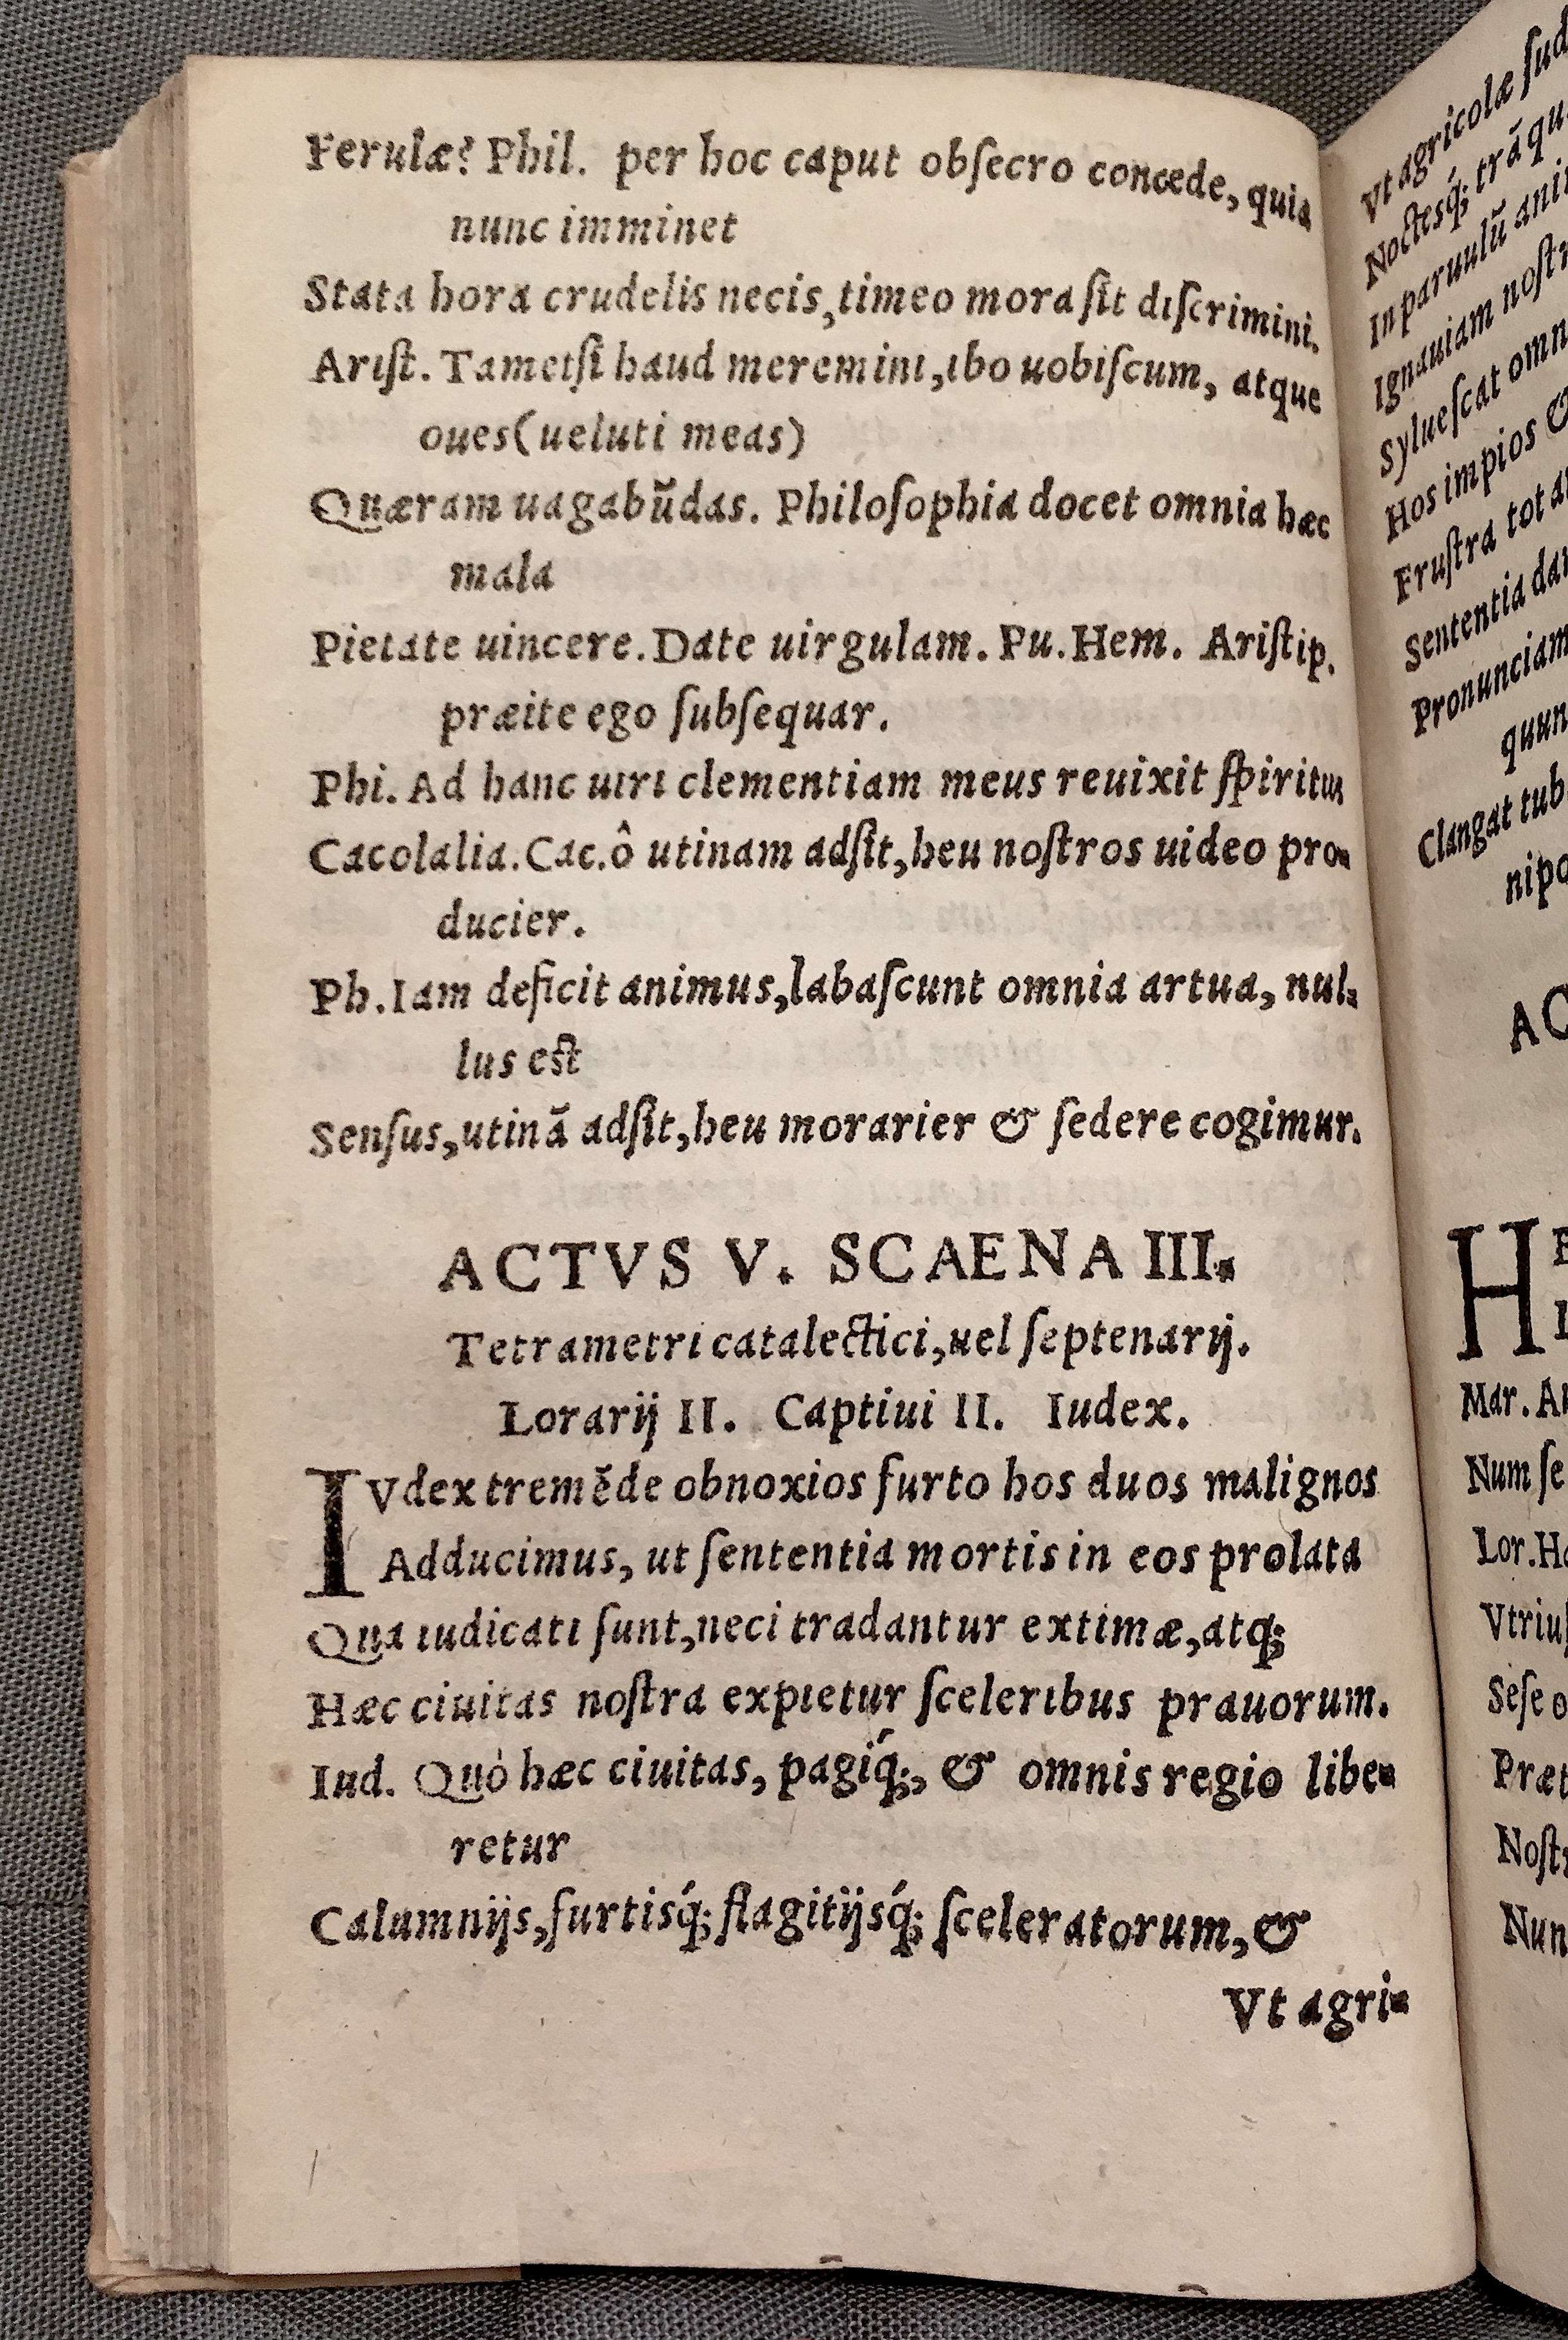 Ferulæ? Phil. per hoc caput obſecro concede, quia
nunc imminet
Stata hora crudelis necis, timeo mora ſit diſcrimini.
Ariſt. Tametſi haud meremini, ibo uobiſcum, atque
oues (ueluti meas)
Quæram uagabũdas. Philoſophia docet omnia hæc
mala
Pietate uincere. Date uirgulam. Pu. Hem. Ariſtip.
præite ego ſubſequar.
Phi. Ad hanc uiri clementiam meus reuixit ſpiritus
Cacolalia. Cac. ô utinam adſit, heu noſtros uideo pro-
ducier.
Ph. Iam deficit animus, labaſcunt omnia artua, nul-
lus eſt
Senſus, utinã adſit, heu morarier & ſedere cogimur.
ACTVS V. SCAENA III.
Tetrametri catalectici, uel ſeptenarij.
Lorarij II. Captiui II. Iudex.
IVdex tremẽde obnoxios furto hos duos malignos
Adducimus, ut ſententia mortis in eos prolata
Qua iudicati ſunt, neci tradantur extimæ, atq;
Hæc ciuitas noſtra expietur ſceleribus prauorum.
Iud. Quò hæc ciuitas, pagiq́;, & omnis regio libe-
retur
Calumnijs, furtisq́; flagitijsq́; ſceleratorum, &
Vt agri-
Vt agricolæ
Noctesq́; trãqu
In paruulũ ani
Ignauiam noſtr
Sylueſcat omn
Hos impios &
Fruſtra tot a
Sententia da
Pronunciam
quun
Clangat tub
nipo
AC
H
Mar. A
Num ſe
Lor. H
Vtriuſ
Seſe o
Præt
Noſt
Nun